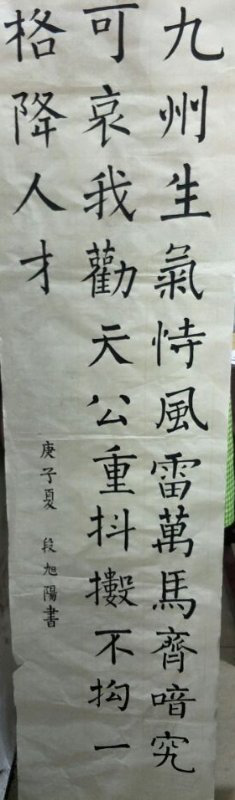 九州生氣恃風雷萬馬齊喑究
可哀我勸天公重抖擻不拘一
格降人才
庚子夏 段旭陽書